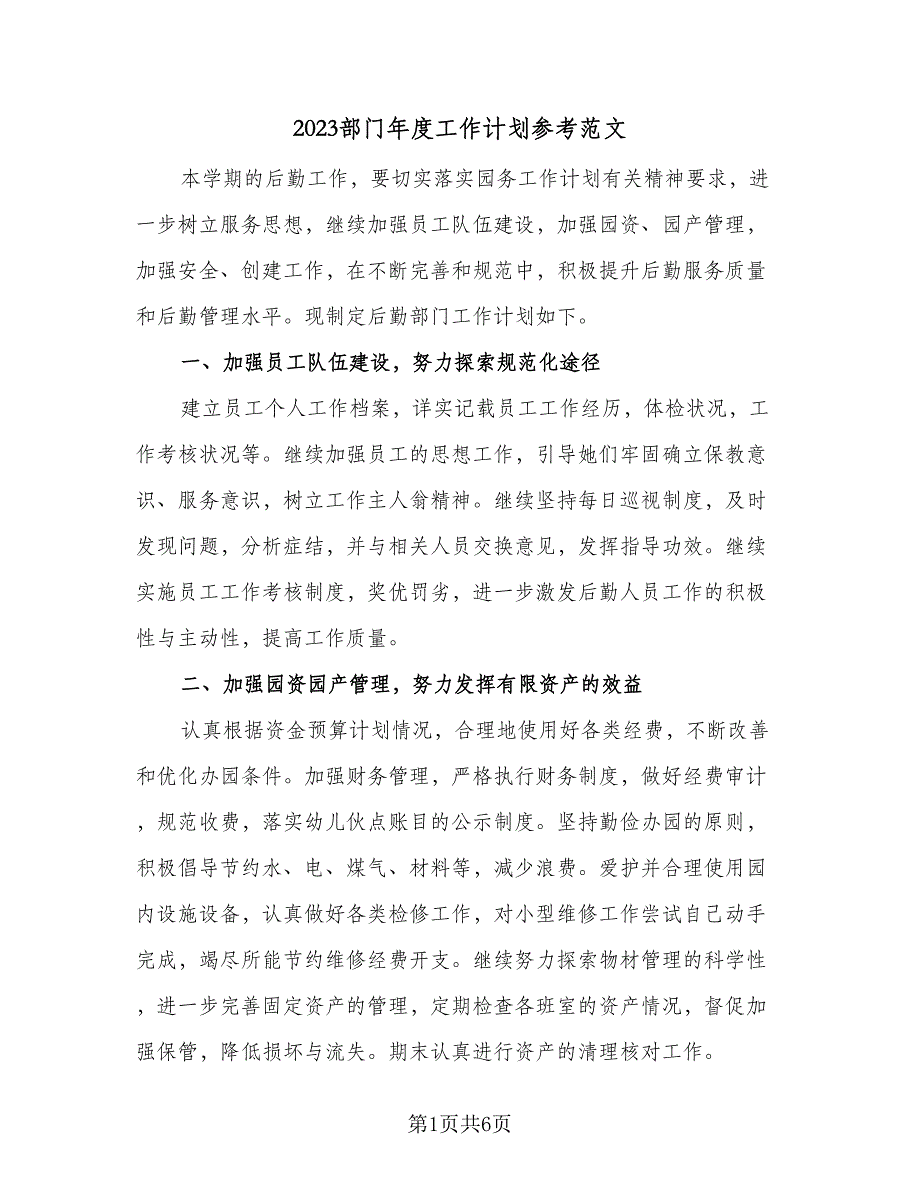 2023部门年度工作计划参考范文
本学期的后勤工作，要切实落实园务工作计划有关精神要求，进
一步树立服务思想，继续加强员工队伍建设，加强园资、园产管理，
加强安全、创建工作，在不断完善和规范中，积极提升后勤服务质量
和后勤管理水平。现制定后勤部门工作计划如下。
一、加强员工队伍建设，努力探索规范化途径
建立员工个人工作档案，详实记载员工工作经历，体检状况，工
作考核状况等。继续加强员工的思想工作，引导她们牢固确立保教意
识、服务意识，树立工作主人翁精神。继续坚持每日巡视制度，及时
发现问题，分析症结，并与相关人员交换意见，发挥指导功效。继续
实施员工工作考核制度，奖优罚劣，进一步激发后勤人员工作的积极
性与主动性，提高工作质量。
二、加强园资园产管理，努力发挥有限资产的效益
认真根据资金预算计划情况，合理地使用好各类经费，不断改善
和优化办园条件。加强财务管理，严格执行财务制度，做好经费审计
，规范收费，落实幼儿伙点账目的公示制度。坚持勤俭办园的原则，
积极倡导节约水、电、煤气、材料等，减少浪费。爱护并合理使用园
内设施设备，认真做好各类检修工作，对小型维修工作尝试自己动手
完成，竭尽所能节约维修经费开支。继续努力探索物材管理的科学性
，进一步完善固定资产的管理，定期检查各班室的资产情况，督促加
强保管，降低损坏与流失。期末认真进行资产的清理核对工作。
第1页共6页